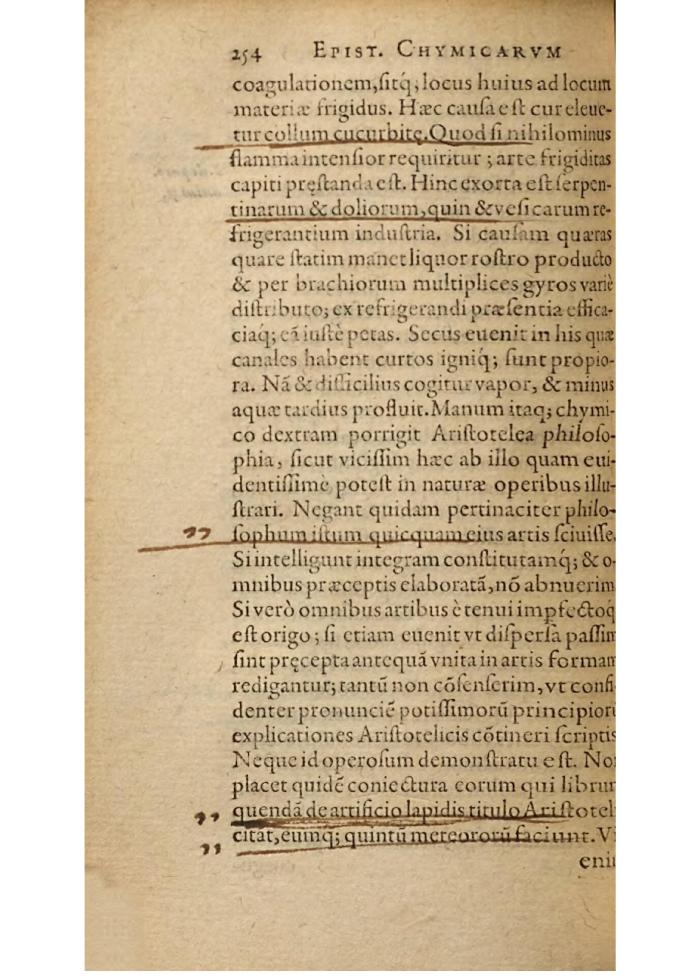 254 EPIST. CHYMICARVM
coagulationem,ſitq́; locus huius ad locum
materiæ frigidus. Hæc cauſa eſt cur eleue-
tur collum cucurbitę. Quod ſi nihilominus
flamma intenſior requiritur ; arte frigiditas
capiti pręſtanda eſt. Hinc exorta eſt ſerpen-
tinarum & doliorum, quin & veſicarum re-
frigerantium induſtria. Si cauſam quæras
quare ſtatim manet liquor roſtro producto
& per brachiorum multiplices gyros variè
diſtributo; ex refrigerandi præſentia effica-
ciaq́; eā iuſtè petas. Secus euenit in his quæ
canales habent curtos igniq́; ſunt propio-
ra. Nā & difficilius cogitur vapor, & minus
aquæ tardius profluit. Manum itaq; chymi-
co dextram porrigit Ariſtotelea philoſo-
phia, ſicut viciſſim hæc ab illo quam eui-
dentiſſimè poteſt in naturæ operibus illu-
ſtrari. Negant quidam pertinaciter philo-
ſophum iſtum quicquam eius artis ſciuiſſe.
Si intelligunt integram conſtitutamq́; & o-
mnibus præceptis elaboratā, nō abnuerim
Si verò omnibus artibus è tenui impfectoq́
eſt origo ; ſi etiam euenit vt diſperſa paſſim
ſint pręcepta antequā vnita in artis formam
redigantur; tantū non cōſenſerim, vt confi-
denter pronunciē potiſſimorū principiorū
explicationes Ariſtotelicis cōtineri ſcriptis
Neque id operoſum demonſtratu eſt. No
placet quidē coniectura eorum qui librum
quendā de artificio lapidis titulo Ariſtotel
citat, eumq; quintū meteororū faciunt. V
eni